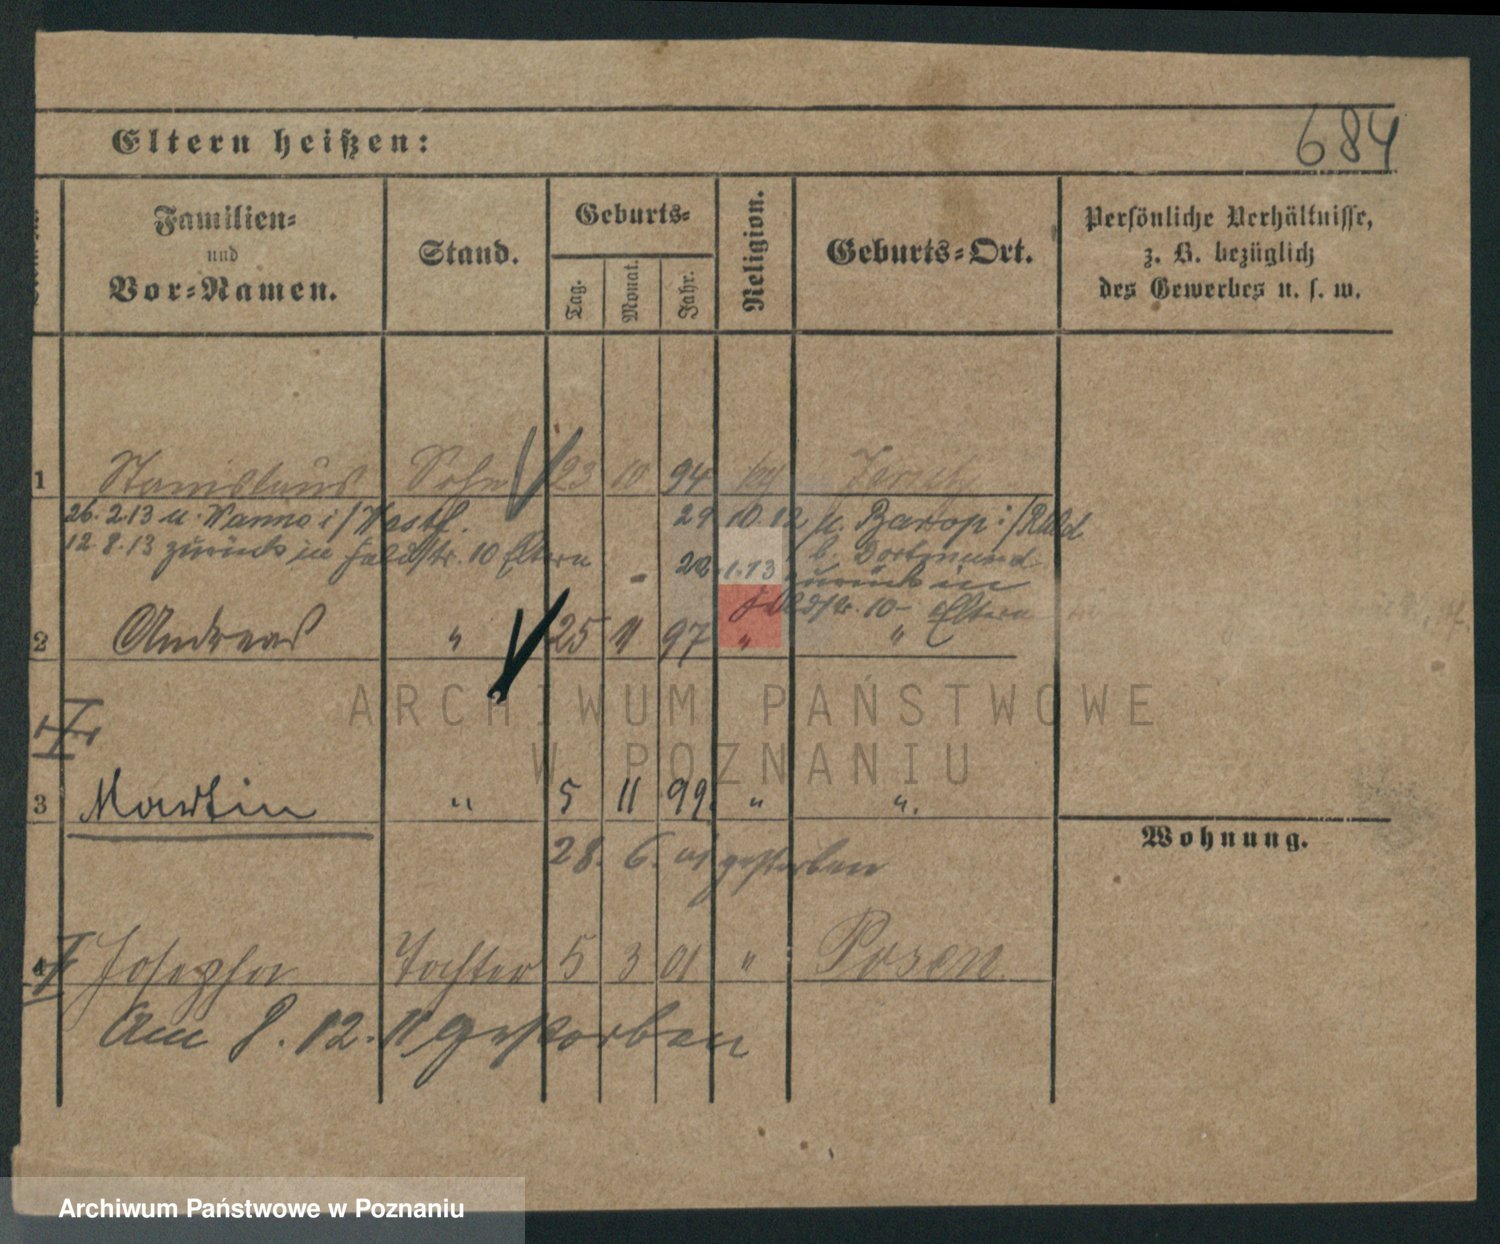 684
Eltern heißen:
Familien-
und
Vor-Namen.
Stand.
Geburts-
Tag.
Monat.
Jahr.
Religion.
Geburts-Ort.
Persönliche Verhältnisse,
z. B. bezüglich
des Gewerbes u. s. w.
1 Stanislaus Sohn 23 10 94
26. 2. 13 u. Wanne i/Westf.
29 10 12 u. Barop i/
12. 8. 13 zurück in Feldstr. 10 Eltern
b. Dortmund
22. 1. 13 zurück in
Feldstr. 10 - Eltern
2 Andreas " 25 11 97 " "
ARCHIWUM PAŃSTWOWE
W POZNANIU
3 Martin " 5 11 99. " ".
Wohnung.
28. 6. 01 gestorben
4 Josepha Tochter 5 3 01 " Posen
Am 8. 12. 11 gestorben
Archiwum Państwowe w Poznaniu